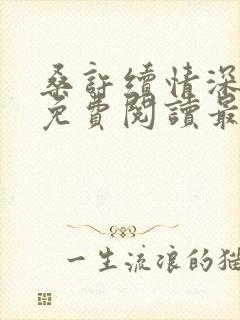 桑許續情深
免費閱讀最
一生流浪的猫